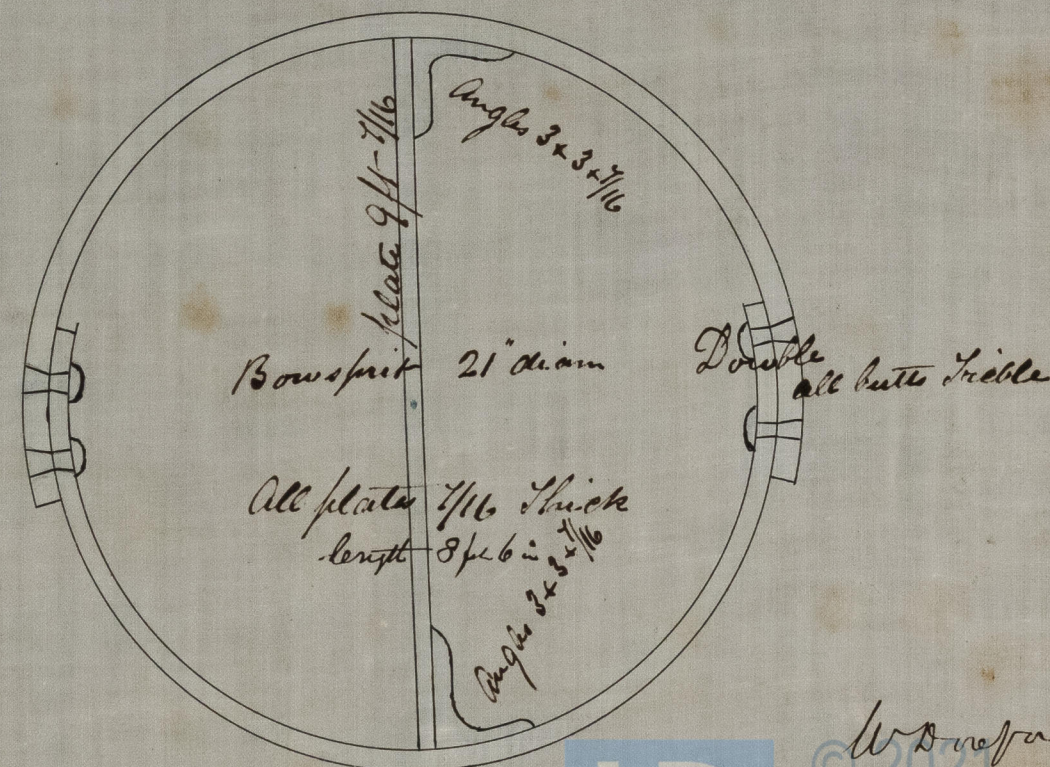 plate 9 ft - 7/16
Angles 3 x 3 x 7/16
Bowsprit 21" diam
Double
all butts Treble
All plates 7/16 Thick
length 8 ft 6 in
Angles 3 x 3 x 7/16
© 2021